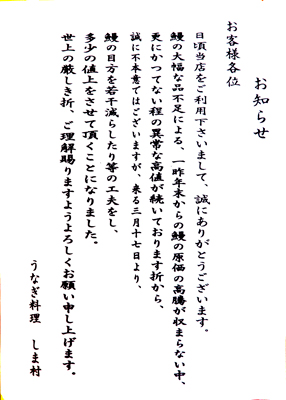 お知らせ
お客様各位
日頃当店をご利用下さいまして、誠にありがとうございます。
鰻の大幅な品不足による、一昨年末からの鰻の原価の高騰が収まらない中、
更にかつてない程の異常な高値が続いております折から、
誠に不本意ではございますが、来る三月十七日より、
鰻の目方を若干減らしたり等の工夫をし、
多少の値上をさせて頂くことになりました。
世上の厳しき折、ご理解賜りますようよろしくお願い申し上げます。
うなぎ料理 しま村